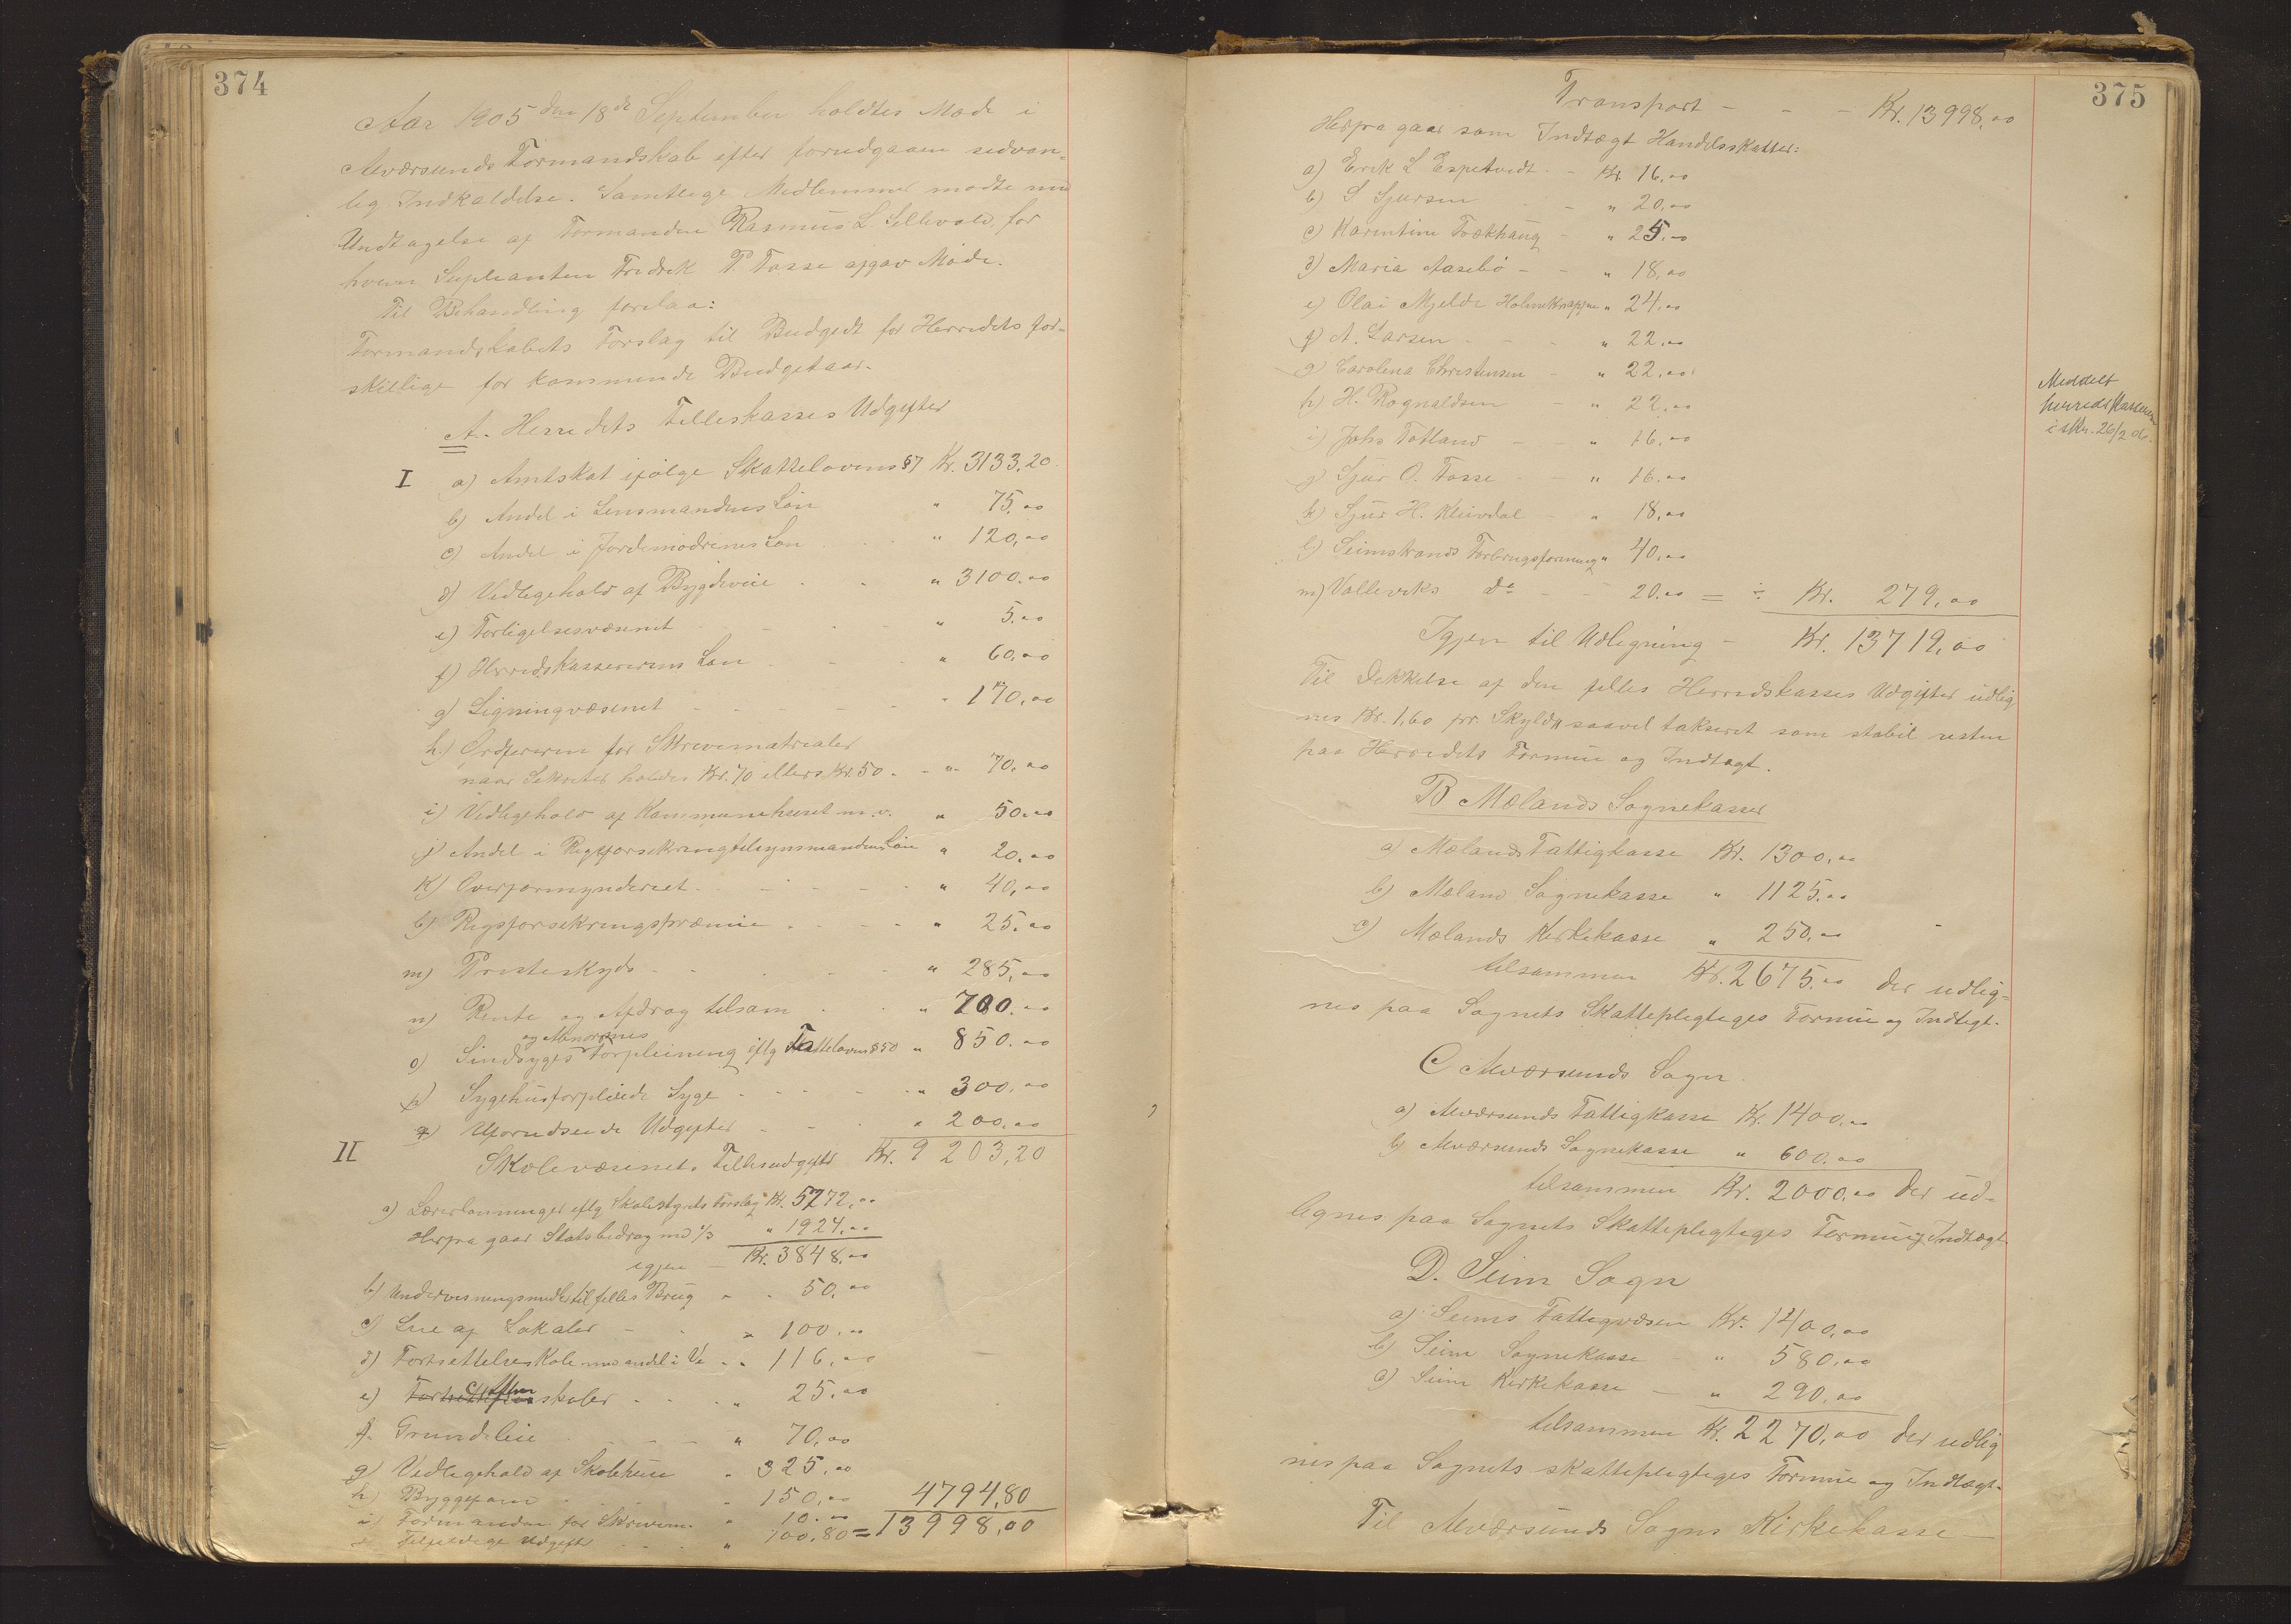 374
Aar 1905 den 18de September holdtes Møde i
Alværsunds Formandskab efter forudgaaen sedvan-
lig Indkaldelse. Samtlige Medlemmer mødte med
Undtagelse af Formanden Rasmus L. Sellevold, for
hvem Supleanten Fredrik P. Fosse afgav Møde.
Til Behandling forelaa:
Formandskabets Forslag til Budgedt for Herredets for-
skillige for kommende Budgetaar.
A. Herredets Felleskasses Udgifter
I a) Amtskat ifølge Skattelovens §7 Kr. 3133,20
b) Andel i Lensmandens Løn " 75,00
c) Andel i Jordemødrenes Løn " 120,00
d) Vedligehold af Bygdeveie " 3100,00
e) Forligelsesvæsenet " 5,00
f) Herredskassererens Løn " 60,00
g) Ligningvæsenet " 170,00
h) Ordføreren for Skrivematrialer
naar Sekretær holdes Kr. 70 ellers Kr. 50 " 70,00
i) Vedligehold af Kommunehuset m.v. " 50,00
j) Andel i Rigsforsikringtilsynsmandens Løn " 20,00
k) Overformynderiet " 40,00
l) Rigsforsikringspræmie " 25,00
m) Presteskyds " 285,00
n) Rente og Afdrag tilsam " 700,00
og Abnormes
o) Sindsyges Forpleining iflg Fattelovens §50 " 850,00
p) Sygehusforpleiede Syge " 300,00
q) Uforudseede Udgifter " 200,00
II Skolevæsenets Fellesudgifter Kr. 9203,20
a) Lærerlønninger iflg Skolestyrets Forslag Kr. 5772,00
Herfra gaar Statsbidrag med 1/3 " 1924,00
igjen Kr. 3848,00
b) Undervisningsmidler til felles Brug " 50,00
c) Leie af Lokaler " 100,00
d) Fortsættelsesskole med andel i Ve " 116,00
e) Aftenskoler " 25,00
f. Grundeleie " 70,00
g) Vedligehold af Skolehuse " 325,00
h) Byggefond " 150,00 4794,80
i) Formanden for Skrivem. " 10,00
Tilfeldige Udgifter " 100,80 = 13998,00
375
Transport Kr. 13998,00
Herfra gaar som Indtægt Handelsskatter:
a) Erik L Espetvedt Kr. 16,00
b) S Sjursen " 20,00
c) Karentine Fockhaug " 25,00
d) Maria Aasebø " 18,00
e) Olai Mjelde Holmeknappen " 24,00
f) A. Larsen " 22,00
g) Carolina Christensen " 22,00
h) H. Rognaldsen " 22,00
i) Johs Totland " 16,00
j) Sjur O. Fosse " 16,00
k) Sjur H. Kleivdal " 18,00
l) Seimstrands Forbrugsforening " 40,00
m) Valleviks do 20,00 = ÷ Kr. 279,00
Igjen til Udligning Kr. 13719,00
Til Dekkelse af den felles Herredskasses Udgifter udlig
nes Kr. 1,60 pr. Skyld saavel takseret som stabil resten
paa Herredets Formue og Indtægt.
B Mælands Sognekasser
a) Mælands Fattigkasse Kr. 1300,00
b) Mæland Sognekasse " 1125,00
c) Mælands Kirkekasse " 250,00
tilsammen Kr. 2675,00 der udlig-
nes paa Sognets Skattepligtiges Formue og Indtægt.
C Alværsunds Sogn
a) Alværsunds Fattigkasse Kr. 1400,00
b) Alværsunds Sognekasse " 600,00
tilsammen Kr. 2000,00 der ud-
lignes paa Sognets Skattepligtiges Formue og Indtægt
D. Seim Sogn
a) Seims Fattigvæsen Kr. 1400,00
b) Seim Sognekasse " 580,00
c) Seim Kirkekasse " 290,00
tilsammen Kr. 2270,00 der udlig
nes paa Sognets skattepligtiges Formue og Indtægt.
Til Alværsunds Sogns Kirkekasse
Meddelt
herredskasseren
i skr. 26/2 06.